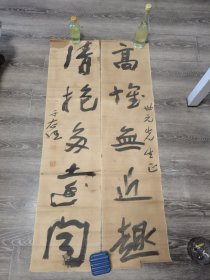 高怀無近趣
世元先生正
清抱多遠闻
于右任